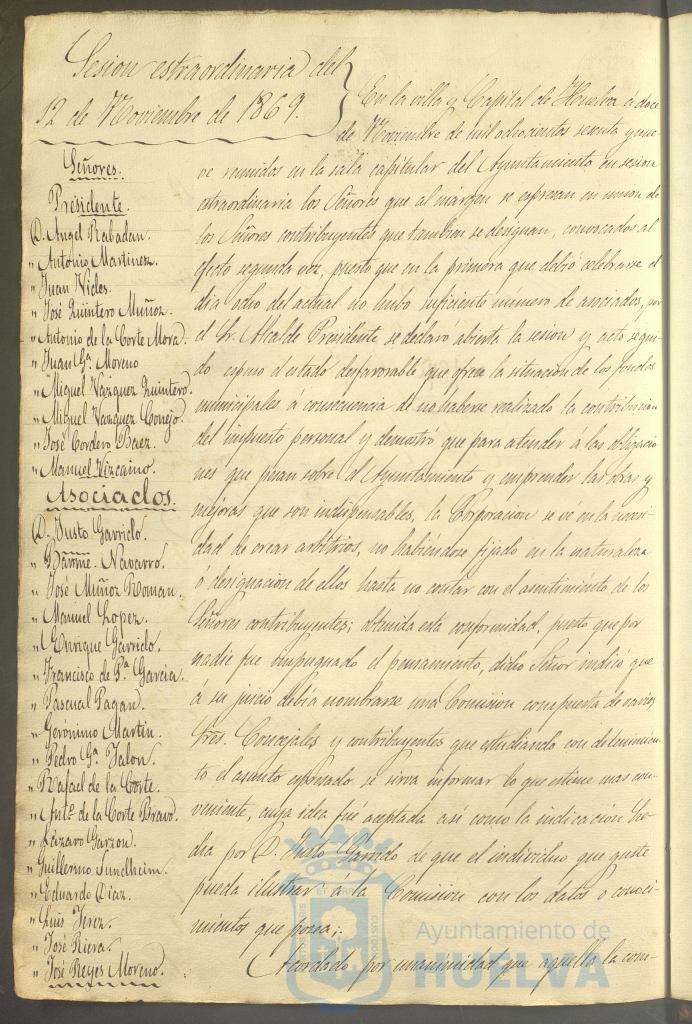 Sesion estraordinaria del
12 de Noviembre de 1869.
Señores.
Presidente.
D. Angel Rabadan.
" Antonio Martinez.
" Juan Vides.
" José Quintero Muñoz.
" Antonio de la Corte Mora.
" Juan Gª Moreno
" Miguel Vazquez Quintero.
" Miguel Vazquez Conejo.
" José Cordero Baez.
" Manuel Vizcaino.
Asociados.
D. Justo Garrido.
" Barme. Navarro.
" José Muñoz Roman.
" Manuel Lopez.
" Enrique Garrido.
" Francisco de Pª Garcia.
" Pascual Pagan.
" Gerónimo Martin.
" Pedro Gª Jalon.
" Rafael de la Corte.
" Antº de la Corte Bravo.
" Lazaro Garzon.
" Guillermo Sundheim.
" Eduardo Diaz.
" Luis Jerez.
" José Riera.
" José Reyes Moreno.
En la villa y Capital de Huelva á doce
de Noviembre de mil ochocientos sesenta y nue-
ve reunidos en la sala capitular del Ayuntamiento en sesion
estraordinaria los Señores que al márgen se espresan en union de
los Señores contribuyentes que tambien se designan, convocados al
efecto segunda vez, puesto que en la primera que debió celebrarse el
dia ocho del actual no hubo suficiente número de asociados, por
el Sr. Alcalde Presidente se declaró abierta la sesion y acto segui-
do espuso el estado desfavorable que ofrece la situacion de los fondos
municipales á consecuencia de no haberse realizado la contribucion
del impuesto personal y demostró que para atender á las obligacio-
nes que pesan sobre el Ayuntamiento y emprender las obras y
mejoras que son indispensables, la Corporacion se ve en la necesi-
dad de crear arbitrios, no habiéndose fijado en la naturaleza
ó designacion de ellos hasta no contar con el asentimiento de los
Señores contribuyentes; obtenida esta conformidad, puesto que por
nadie fue impugnado el pensamiento, dicho Señor indicó que
á su juicio debia nombrarse una Comision compuesta de varios
Sres. Concejales y contribuyentes que estudiando con detenimien-
to el asunto espresado se sirva informar lo que estime mas con-
veniente, cuya idea fué aceptada así como la indicacion he-
cha por D. Justo Garrido de que el individuo que guste
pueda ilustrar á la Comision con los datos o conoci-
mientos que posea;.
Acordado por unanimidad que aquella la com-
Ayuntamiento de
HUELVA